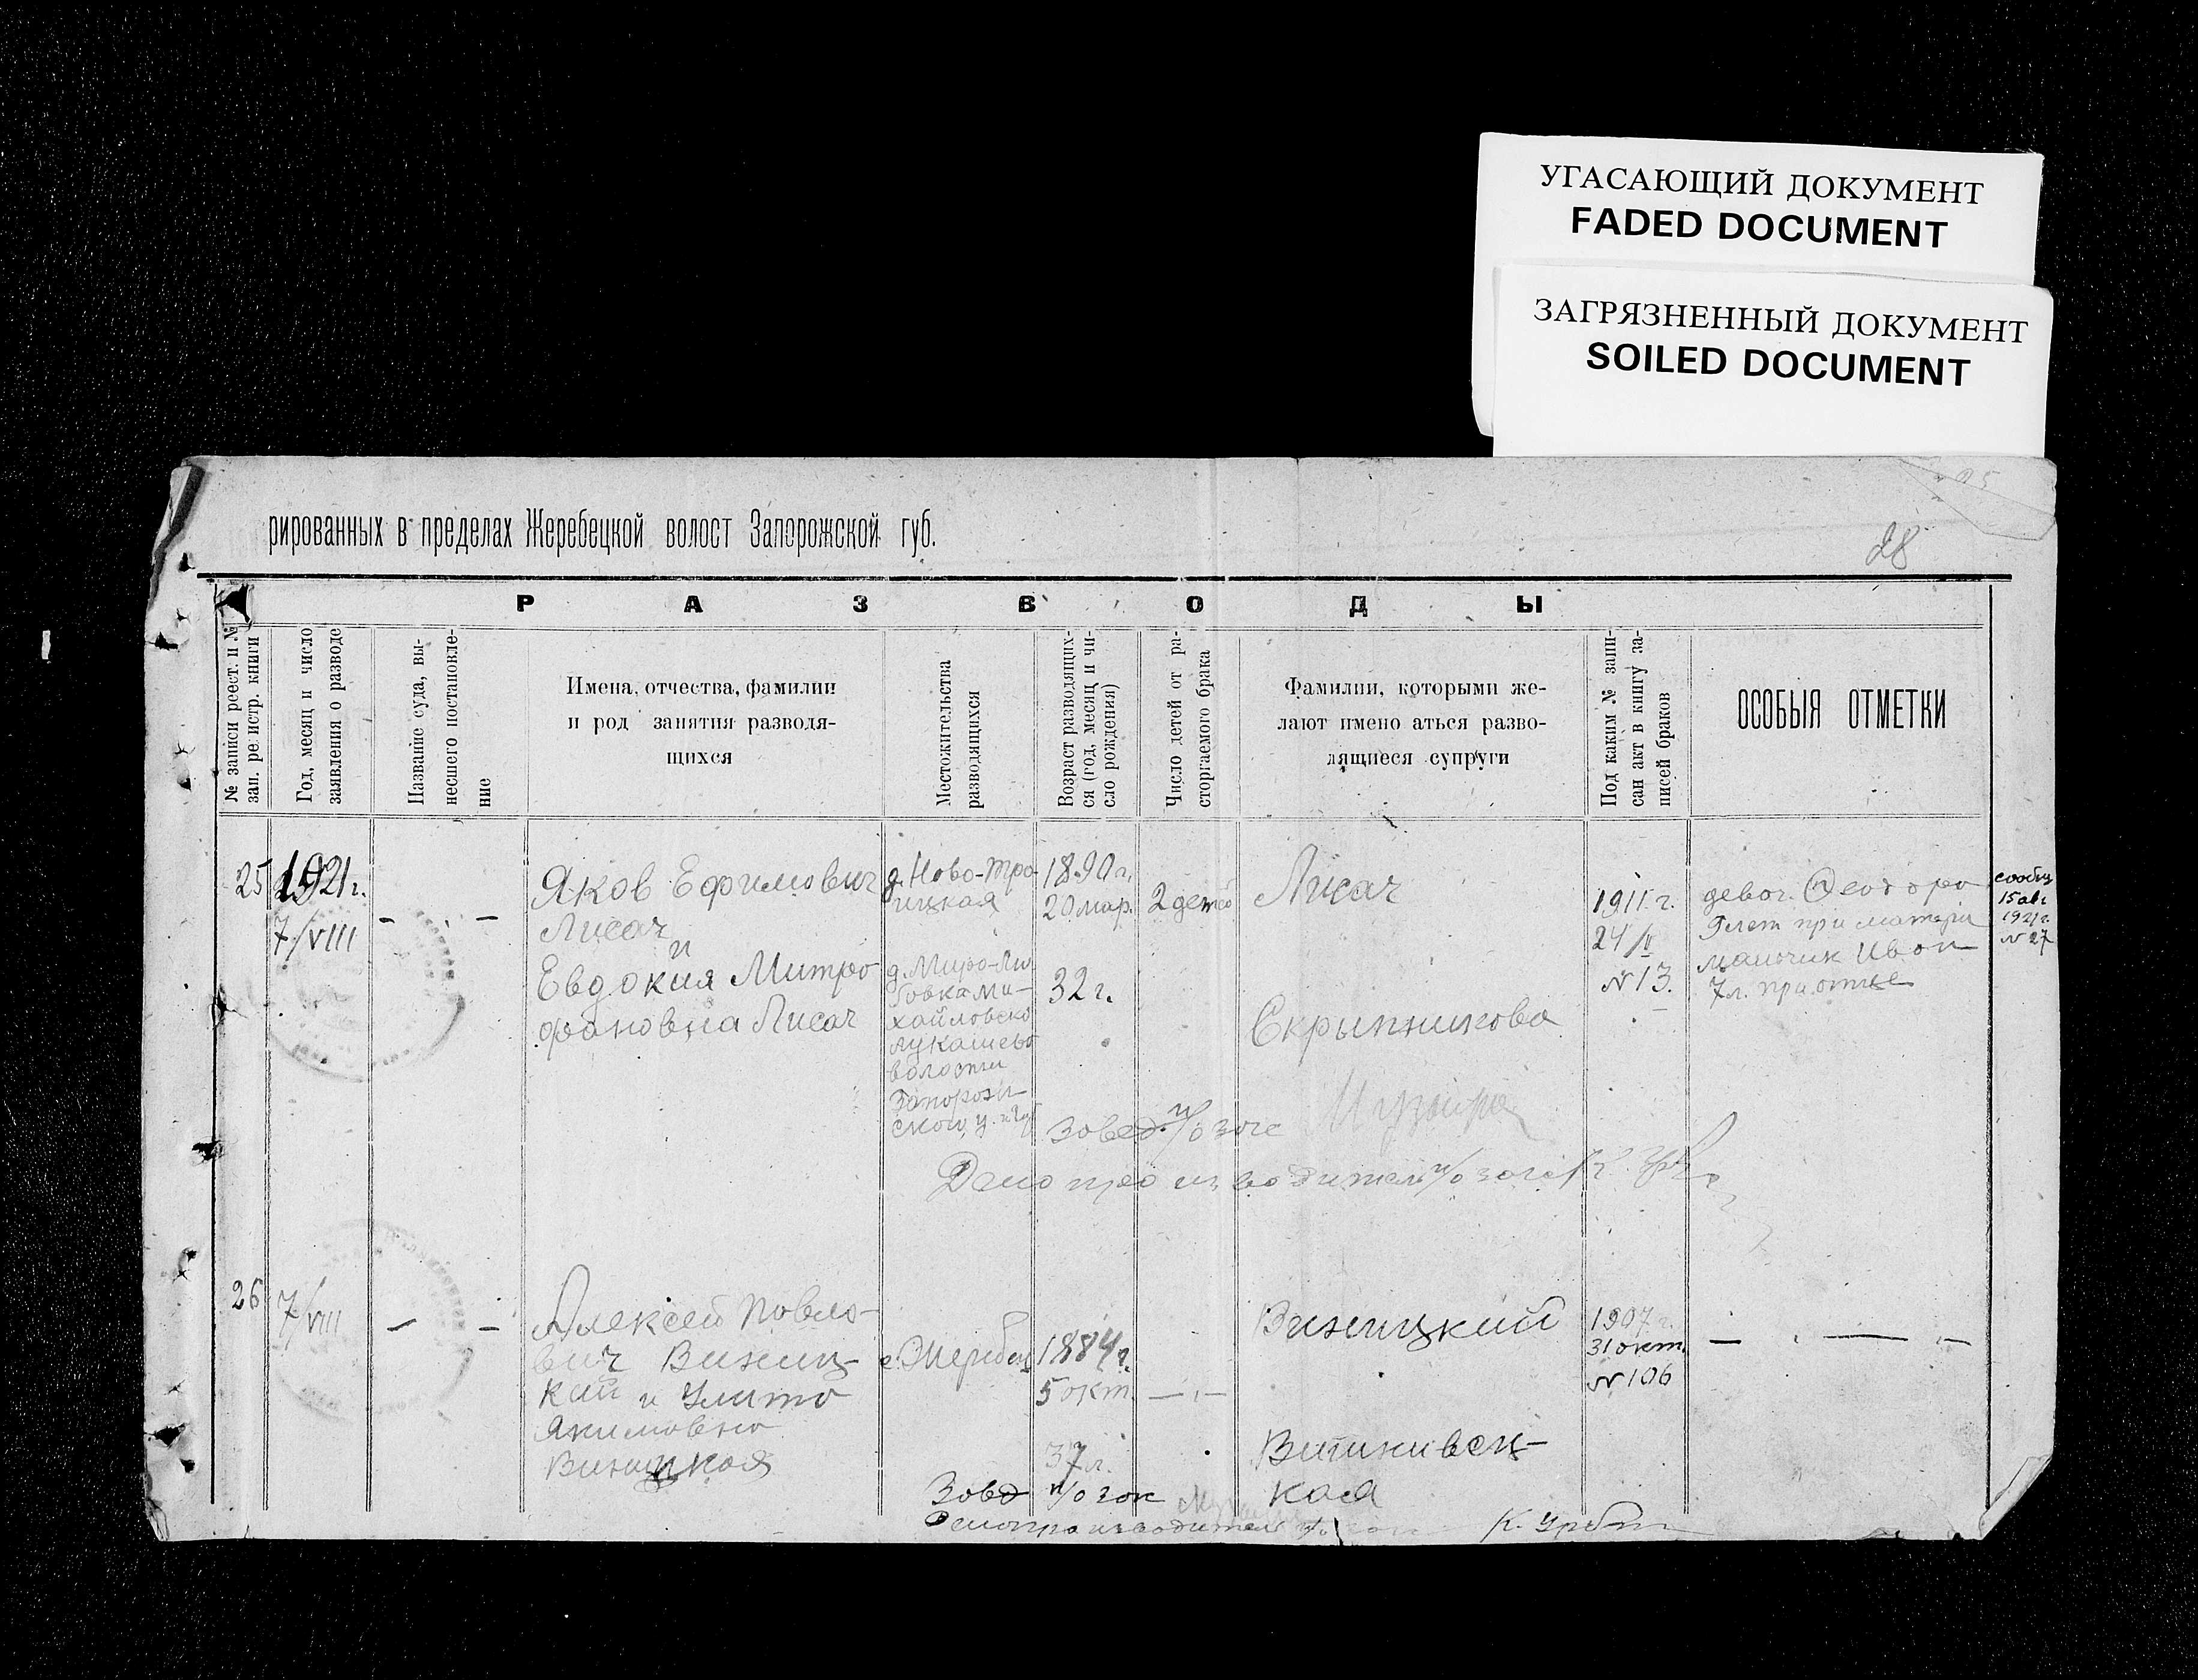 УГАСАЮЩИЙ ДОКУМЕНТ
FADED DOCUMENT
ЗАГРЯЗНЕННЫЙ ДОКУМЕНТ
SOILED DOCUMENT
28
рированных в пределах Жеребецкой волост Запорожской губ.
РАЗВОДЫ
№ записи реест. и №
зап. ре истр. книги
Год, месяц и число
заявления о разводе
Название суда, вы-
несшего постановле-
ние
Имена, отчества, фамилии
и род занятия разводя-
щихся
Местожительства
разводящихся
Возраст разводящих-
ся (год, месяц и чи-
сло рождения)
Число детей от ра-
сторгаемого брака
Фамилии, которыми же-
лают имено аться разво-
дящиеся супруги
Под каким № запи-
сан акт в книгу за-
писей браков
ОСОБЫЯ ОТМЕТКИ
25
1921 г.
7/VIII
— —
Яков Ефимович
Лисач
и
Евдокия Митро
фановна Лисач
д. Ново-Тро-
ицкая
д. Миро-Лю
бовка Ми-
хайловско
Лукашево
волости
Запорож-
ского у. и губ
1890 г.
20 мар.
32 г.
2 детей
Лисач
Скрыпникова
1911 г.
24/II
№ 13.
девоч. Феодора
9 лет при матери
мальчик Иван
7 л. при отце
сообщ
15 авг
1921 г.
№ 27
Завед. п/о загс
Делопроизводитель п/о загс К.
26
7/VIII
— —
Алексей Павло-
вич Виниц-
кий и Улита
Якимовна
Виницкая
с. Жеребец
1884 г.
5 окт.
37 л.
— —
Виницкий
Витнивец-
кая
1907 г.
31 окт.
№ 106
— — —
Завд п/о заг
Делопроизводитель п/о
К.